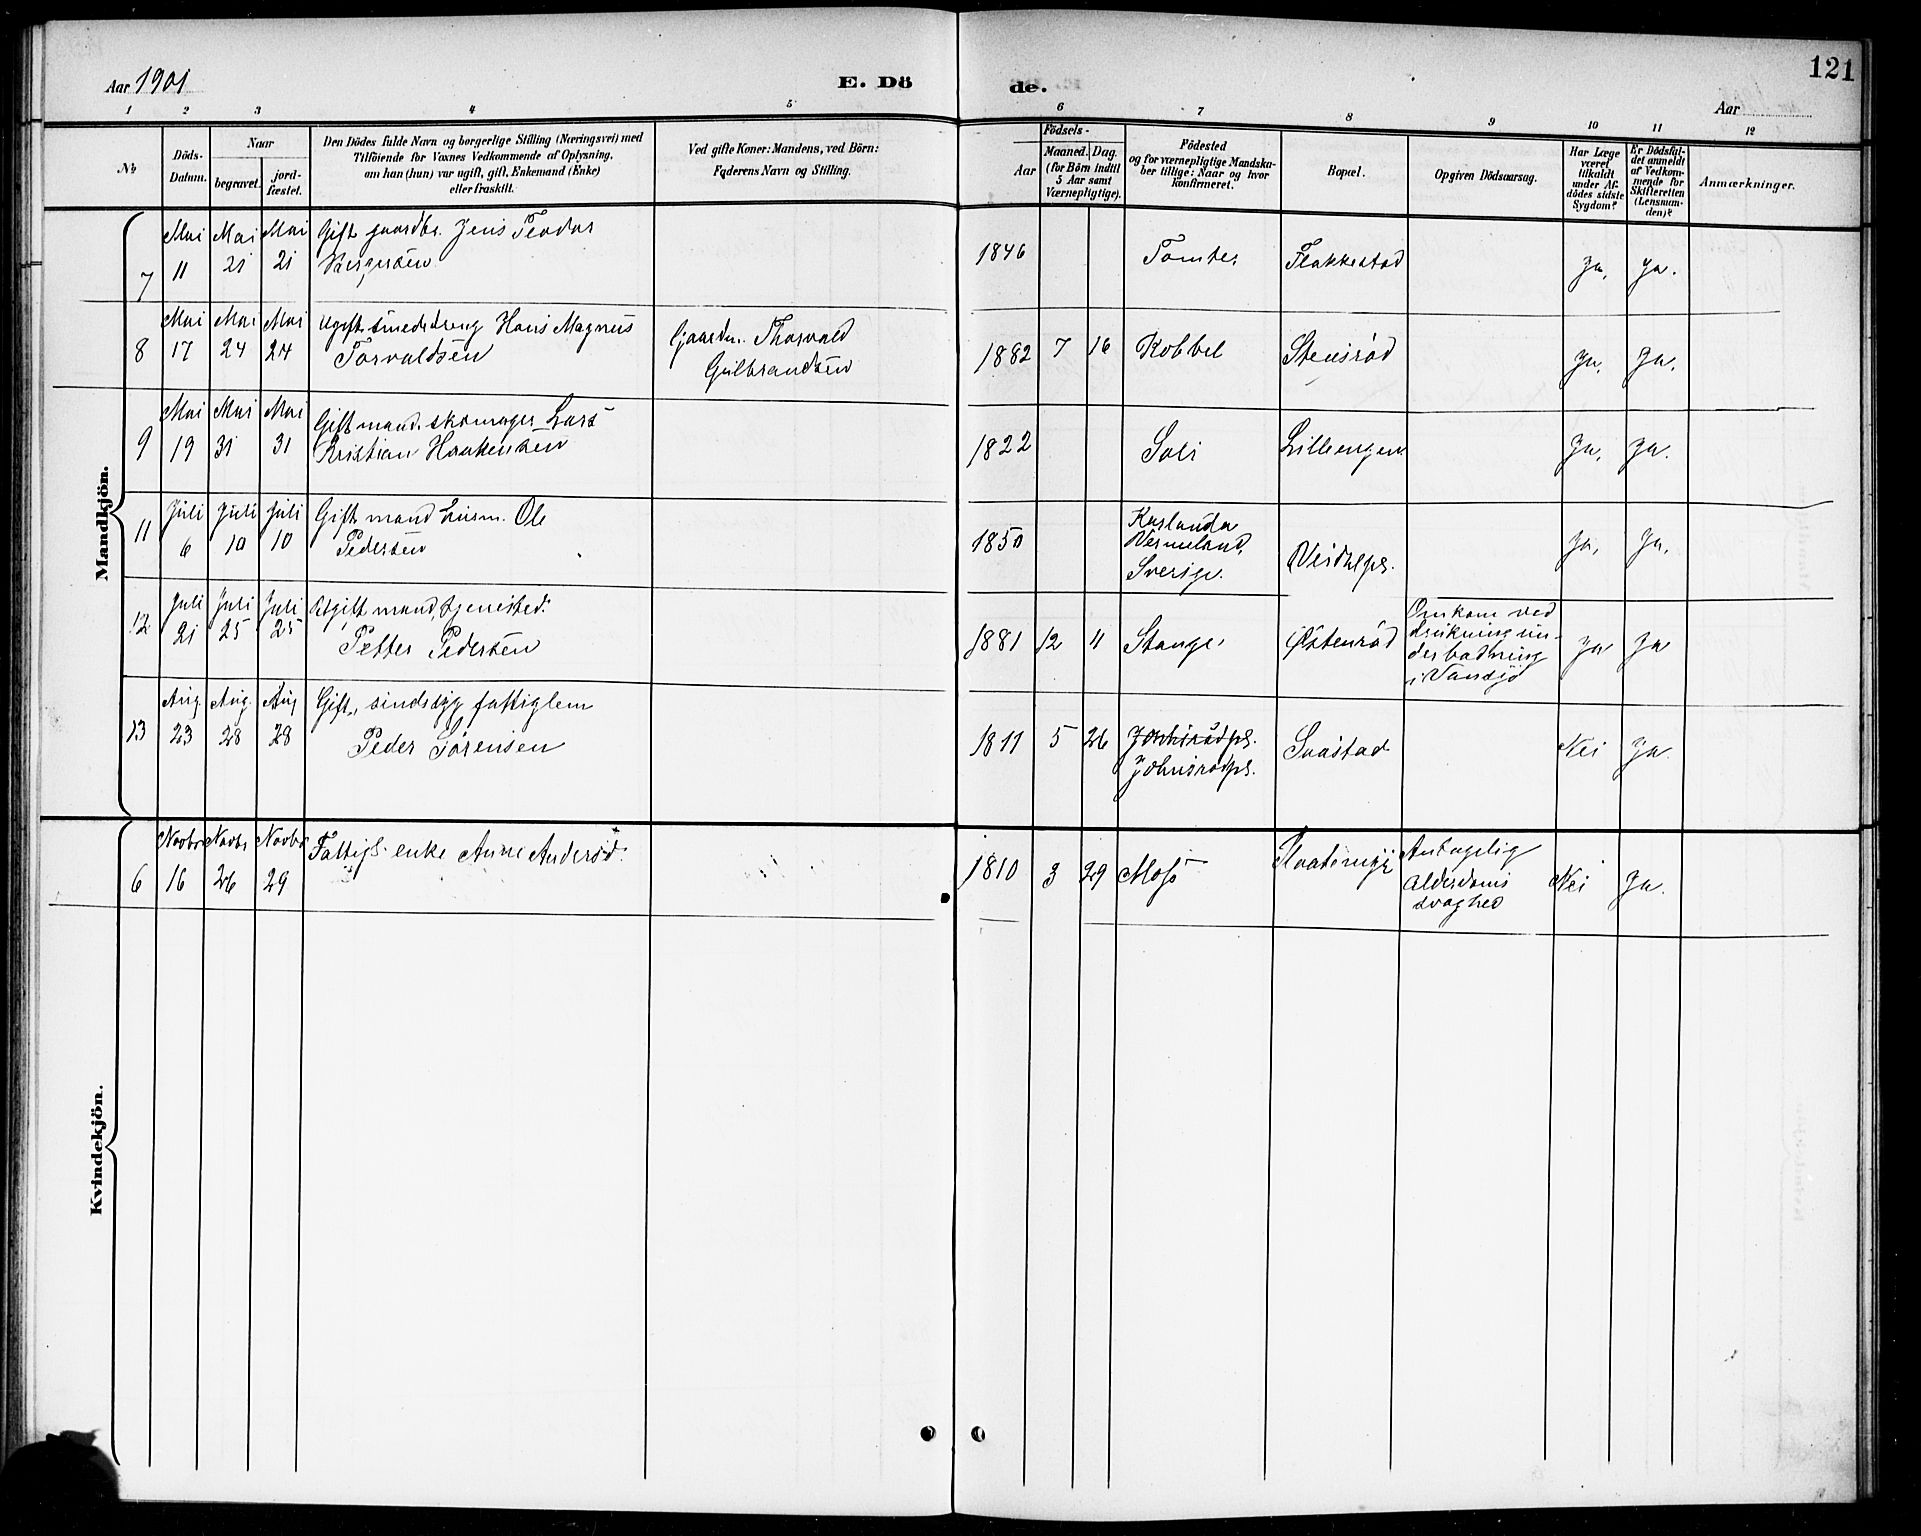 Aar 1901
E. Dö
de.
121
Aar
1 2 3 4 5
6 7 8 9 10 11 12
No
Döds-
Datum.
Naar
begravet.
jord-
fæstet.
Den Dödes fulde Navn og borgerlige Stilling (Næringsvei) med
Tilföiende for Voxnes Vedkommende af Oplysning,
om han (hun) var ugift, gift, Enkemand (Enke)
eller fraskilt.
Ved gifte Koner: Mandens, ved Börn:
Faderens Navn og Stilling.
Födsels-
Aar
Maaned.
Dag.
(for Börn indtil
5 Aar samt
Værnepligtige).
Födested
og for værnepligtige Mandska-
ber tillige: Naar og hvor
konfirmeret.
Bopæl.
Opgiven Dödsaarsag.
Har Læge
været
tilkaldt
under Af-
dödes sidste
Sygdom?
Er Dödsfal-
det anmeldt
af Vedkom-
mende for
Skifteretten
(Lensman-
den)?
Anmærkninger.
Mandkjön.
7
Mai 11
Mai 21
Mai 21
Gift gaardbr. Jens Teodor
1846
Tomter
Flakkestad
Ja.
Ja.
8
Mai 17
Mai 24
Mai 24
Ugift smededreng Hans Magnus
Torvaldsen
Gaardm. Thorvald
Gulbrandsen
1882
7
16
Kobbel
Stensrød
Ja.
Ja.
9
Mai 19
Mai 31
Mai 31
Gift mand skomager Lars
Kristian Haakensen
1822
Soli
Lillengen
Ja.
Ja.
11
Juli 6
Juli 10
Juli 10
Gift mand Husm. Ole
Pedersen
1850
Karlanda
Vermeland,
Sverige.
Ja.
Ja.
12
Juli 21
Juli 25
Juli 25
Ugift mand, tjenisted:
Petter Pedersen
1881
12
11
Stange
Østenrød
Omkom ved
drukning un-
der badning
i Vansjø
Ja
Ja
13
Aug. 23
Aug. 28
Aug 28
Gift, sindssyg fattiglem
Peder Sørensen
1811
5
26
Johnsrødpl.
Svastad
Nei
Ja.
Kvindekjön.
6
Novbr 16
Novbr 26
Novbr 29
Fattigl. enke Anne Anderød.
1810
3
29
Moss
Antagelig
Alderdoms
svaghed
Nei
Ja.